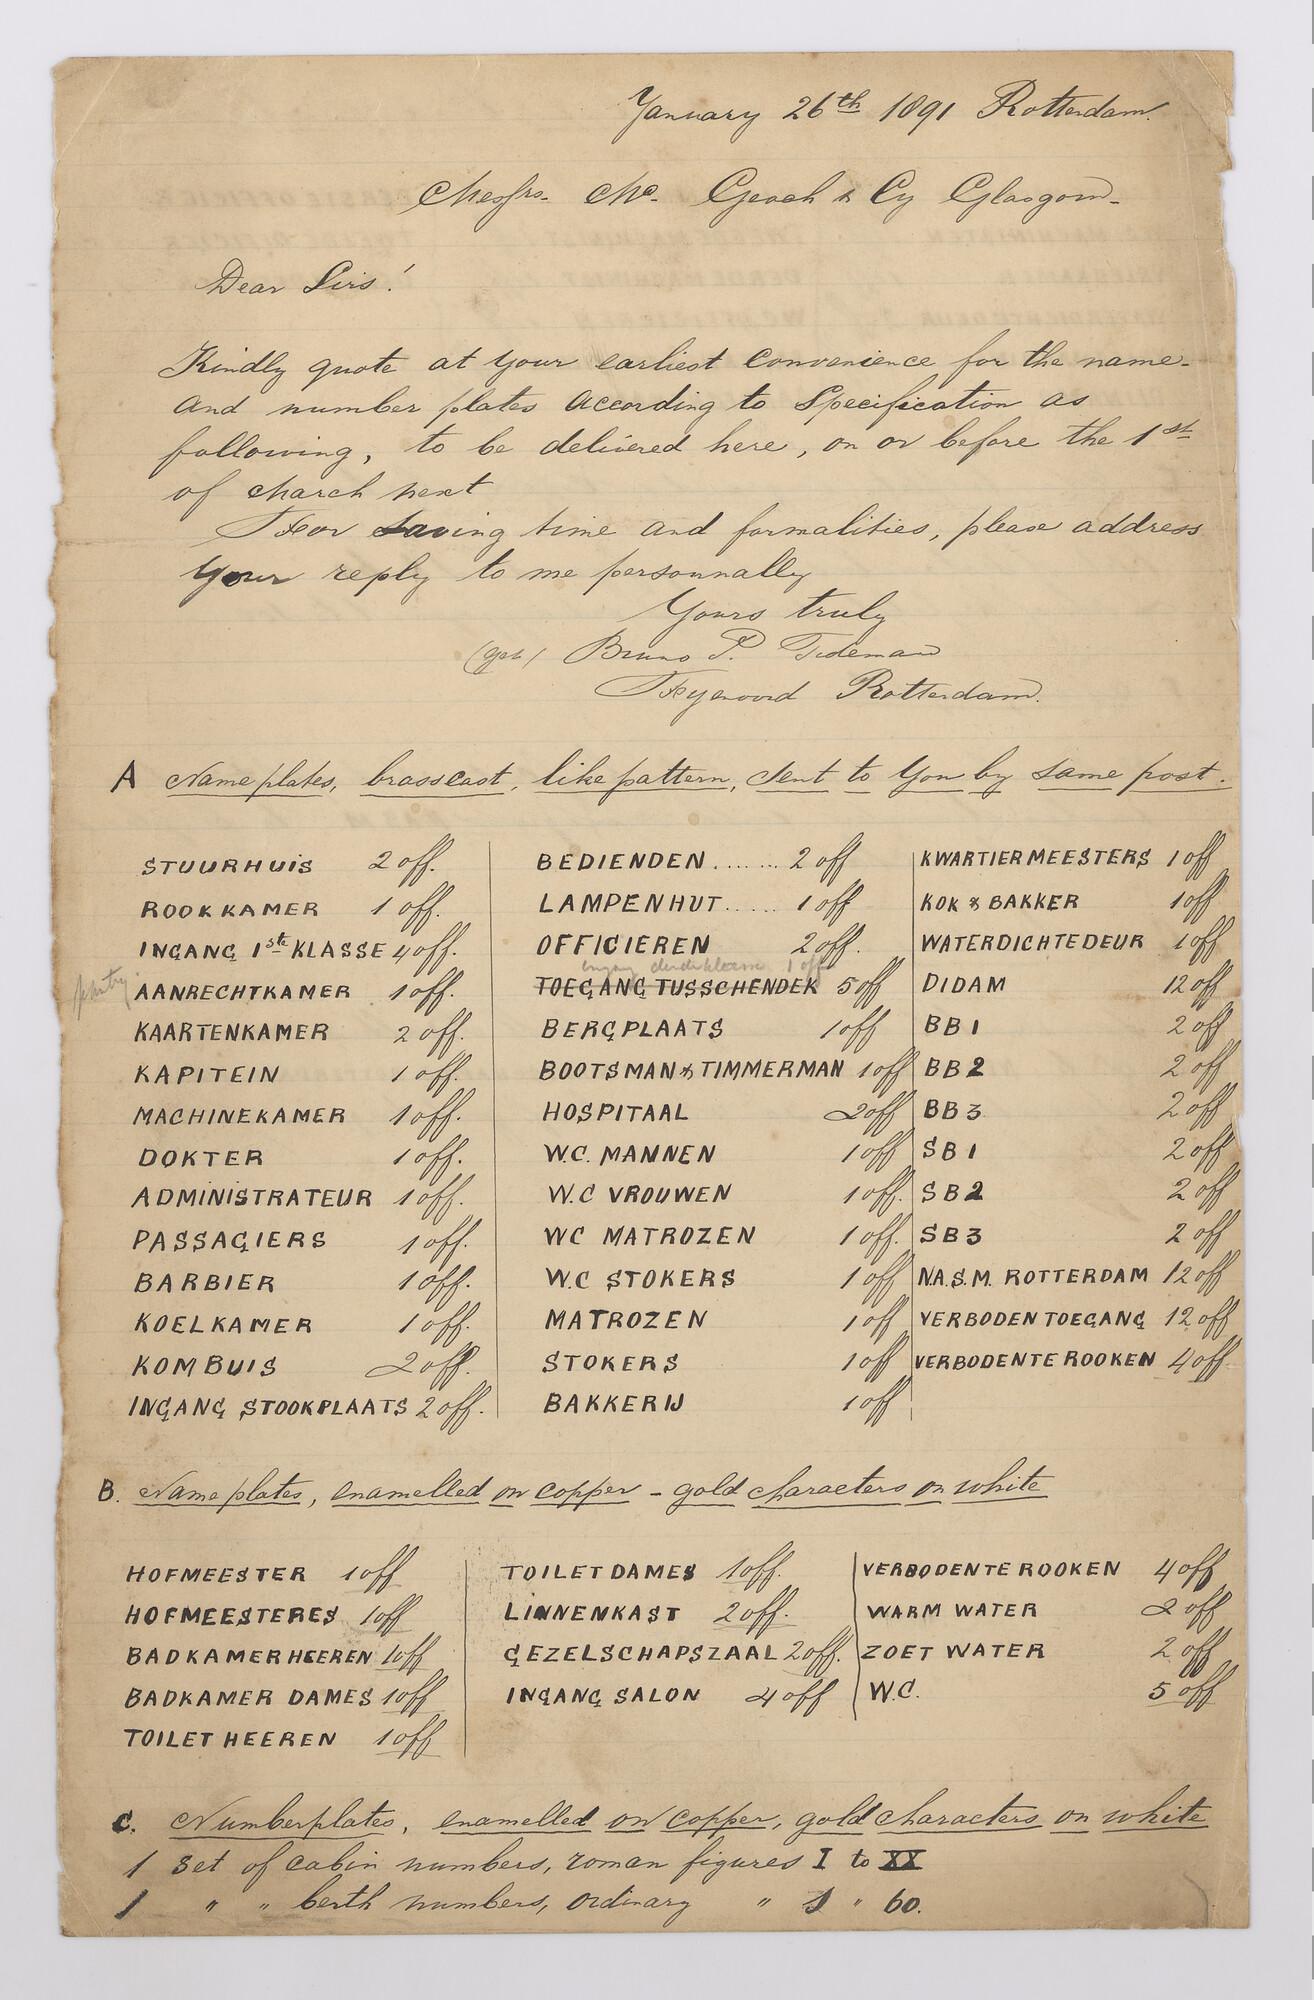 January 26th 1891 Rotterdam.
Messrs. Mc. Geach & Cy Glasgow.
Dear Sirs!
Kindly quote at your earliest convenience for the name-
and number plates according to Specification as
following, to be delivered here, on or before the 1st
of March next
For saving time and formalities, please address
your reply to me personnally
Yours truly
(get) Bruno P. Tideman
Feyenoord Rotterdam.
A Name plates, brasscast, like pattern, sent to You by same post.
STUURHUIS 2 off.
ROOKKAMER 1 off.
INGANG 1ste KLASSE 4 off.
pantry
AANRECHTKAMER 1 off.
KAARTENKAMER 2 off.
KAPITEIN 1 off.
MACHINEKAMER 1 off.
DOKTER 1 off.
ADMINISTRATEUR 1 off.
PASSAGIERS 1 off.
BARBIER 1 off.
KOELKAMER 1 off.
KOMBUIS 2 off.
INGANG STOOKPLAATS 2 off.
BEDIENDEN ....... 2 off
LAMPENHUT ..... 1 off
OFFICIEREN 2 off.
ingang derde klasse 1 off
TOEGANG TUSSCHENDEK 5 off
BERGPLAATS 1 off
BOOTSMAN & TIMMERMAN 1 off
HOSPITAAL 2 off
W.C. MANNEN 1 off
W.C VROUWEN 1 off.
WC MATROZEN 1 off.
W.C STOKERS 1 off
MATROZEN 1 off
STOKERS 1 off
BAKKERIJ 1 off
KWARTIERMEESTERS 1 off
KOK & BAKKER 1 off
WATERDICHTEDEUR 1 off
DIDAM 12 off
BB 1 2 off
BB 2 2 off
BB 3 2 off
SB 1 2 off
SB 2 2 off
SB 3 2 off
N.A.S.M. ROTTERDAM 12 off
VERBODEN TOEGANG 12 off
VERBODEN TE ROOKEN 4 off
B. Name plates, enamelled on copper - gold characters on white
HOFMEESTER 1 off
HOFMEESTERES 1 off
BADKAMER HEEREN 1 off
BADKAMER DAMES 1 off
TOILET HEEREN 1 off
TOILET DAMES 1 off.
LINNENKAST 2 off.
GEZELSCHAPSZAAL 2 off.
INGANG SALON 4 off
VERBODEN TE ROOKEN 4 off
WARM WATER 2 off
ZOET WATER 2 off
W.C. 5 off
C. Numberplates, enamelled on copper, gold characters on white
1 set of cabin numbers, roman figures I to XX
1 " " berth numbers, ordinary " 1 " 60.